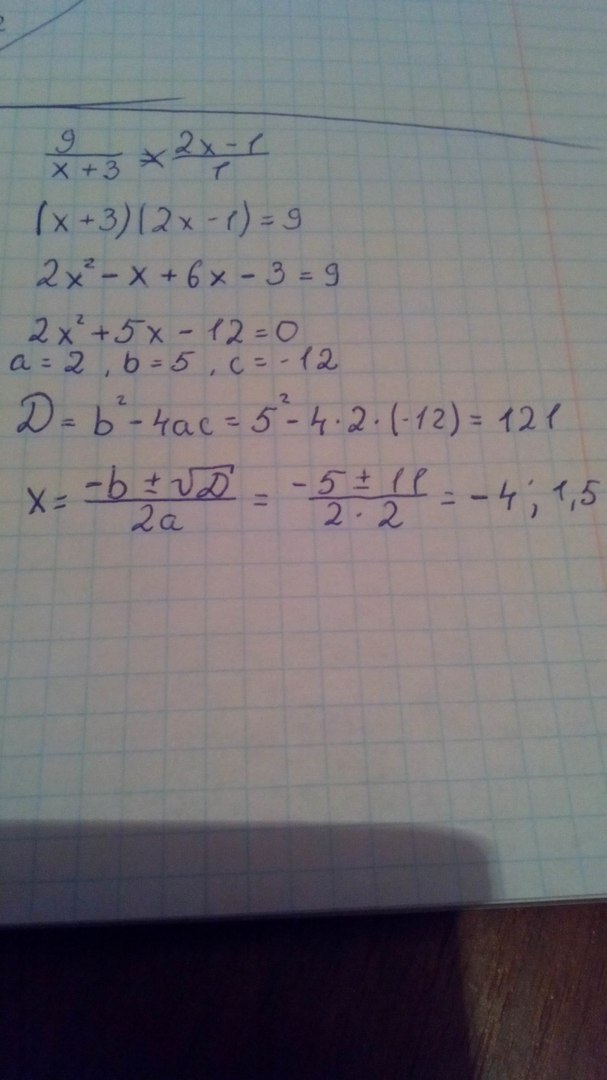 9/(x+3) × (2x-1)/1
(x+3)(2x-1)=9
2x²-x+6x-3=9
2x²+5x-12=0
a=2, b=5, c=-12
D=b²-4ac=5²-4·2·(-12)=121
x=(-b±√D)/(2a)=(-5±11)/(2·2)=-4; 1,5